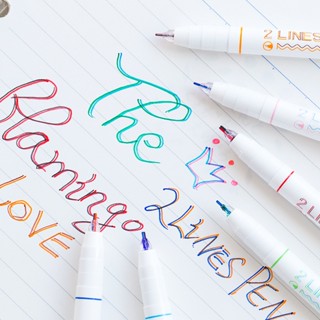 The
Flamingo
LOVE
2LINES PEN
2 LINES
2 LINES
2 LINES